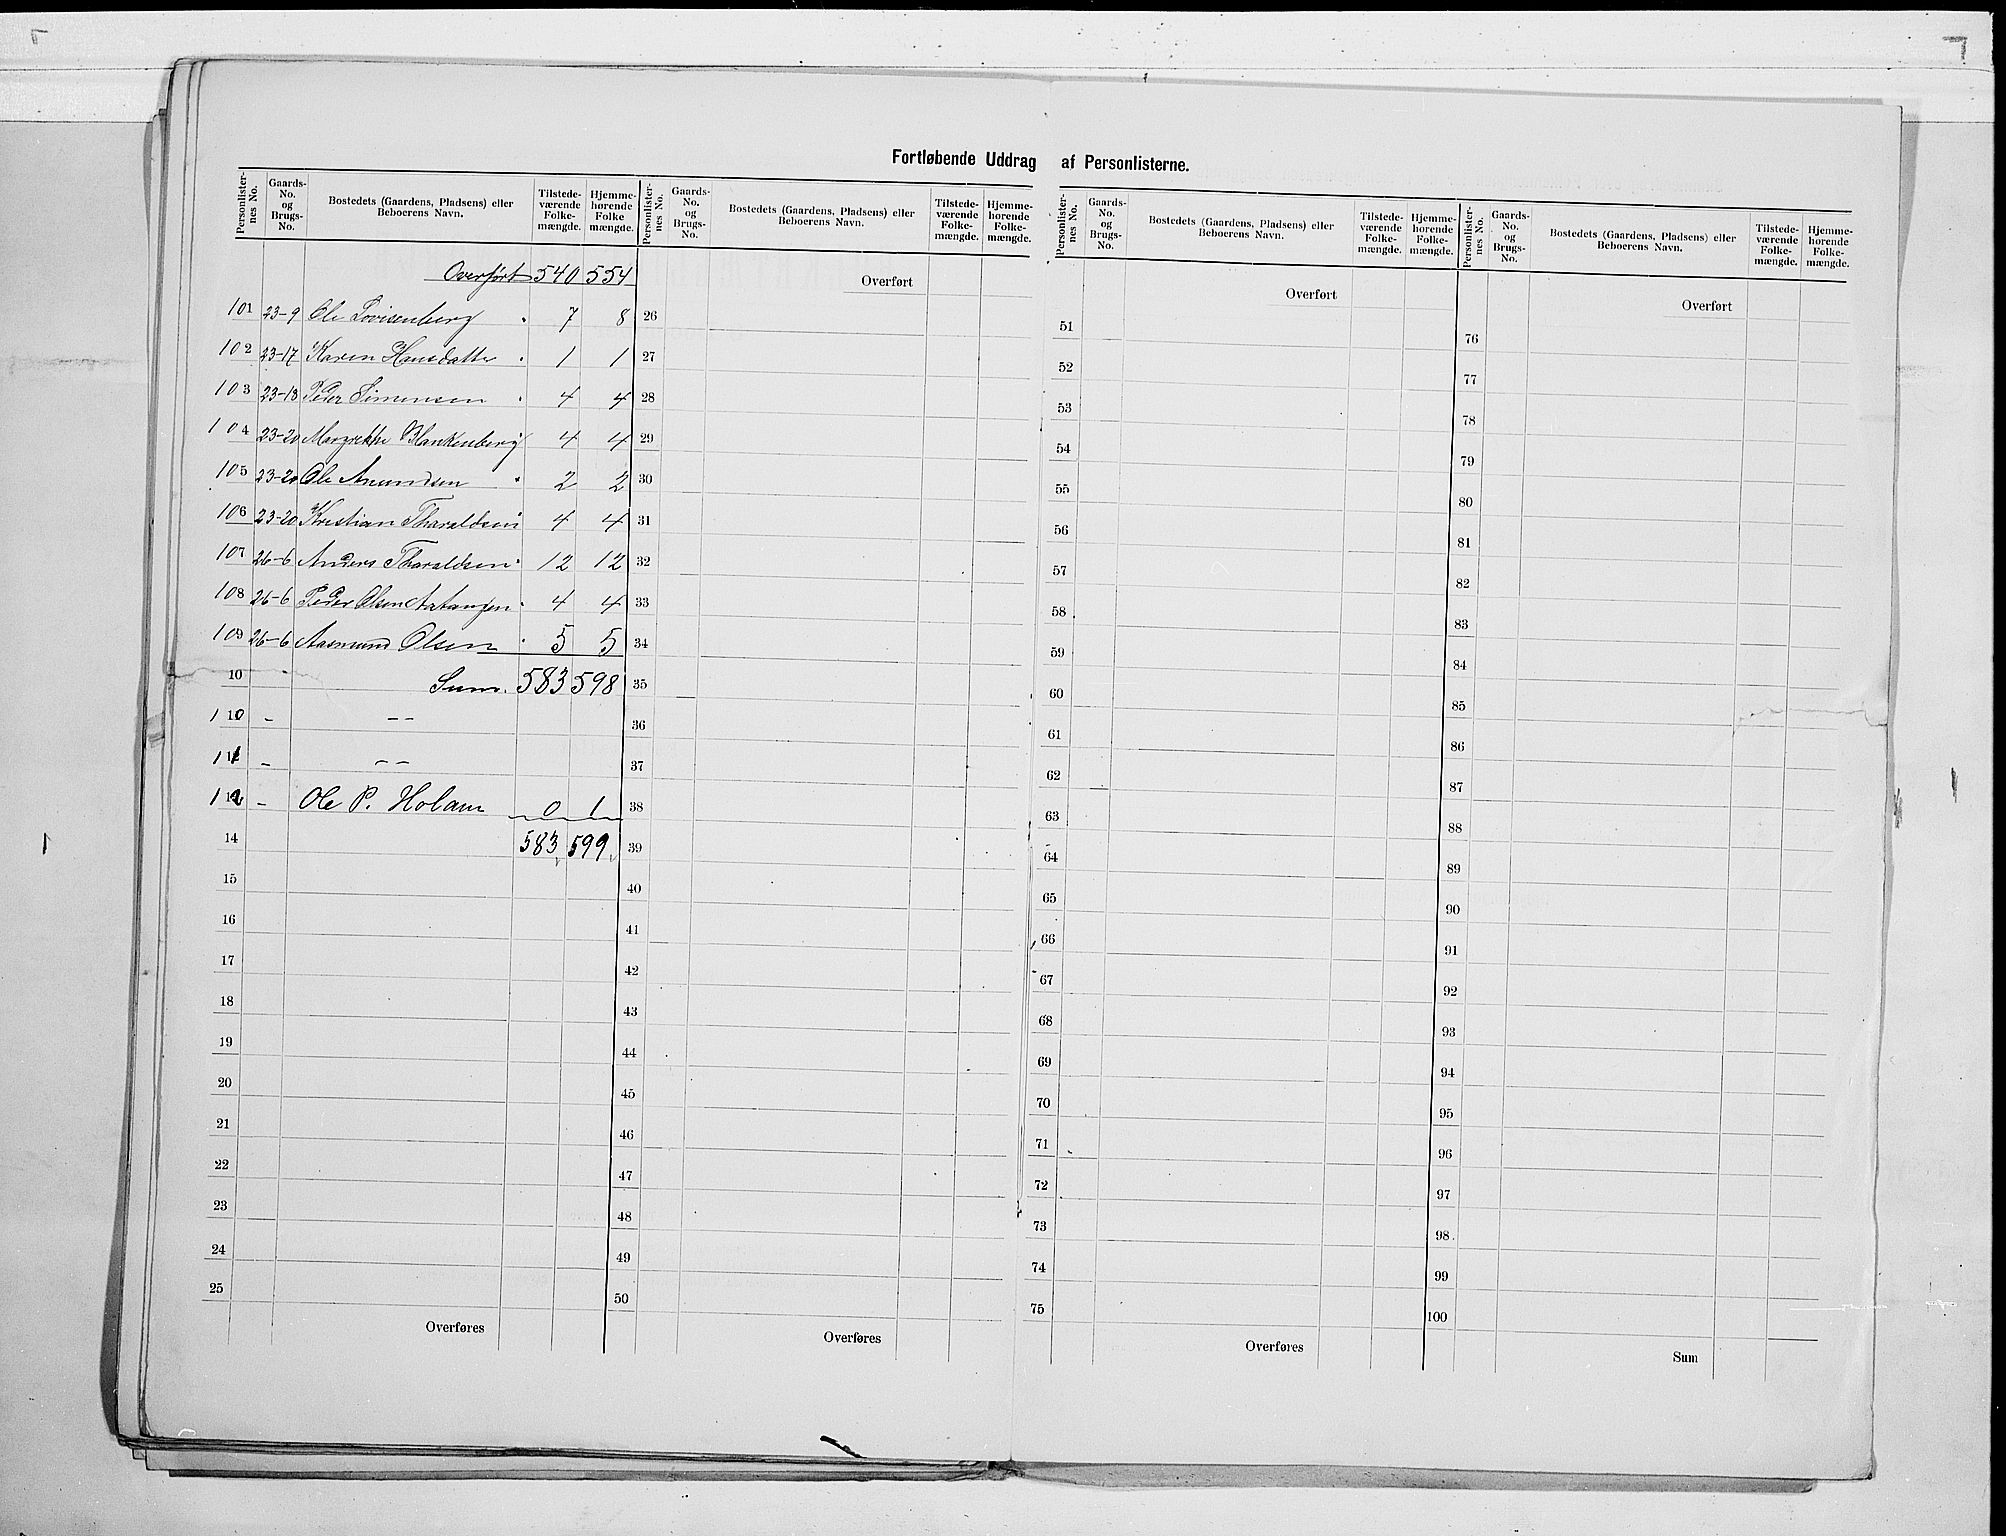 Fortløbende Uddrag af Personlisterne.
Personlister-nes No. Gaards-No. og Brugs-No. Bostedets (Gaardens, Pladsens) eller Beboerens Navn. Tilstede-værende Folke-mængde. Hjemme-hørende Folke mængde.
Overført 540 554
101 23-9 Ole Lovisenberg 7 8
102 23-17 Karen Hansdatter 1 1
103 23-18 Peder Simensen 4 4
104 23-20 Margrethe Blankenberg 4 4
105 23-20 Ole Amundsen 2 2
106 23-20 Kristian Tharaldsen 4 4
107 26-6 Anders Tharaldsen 12 12
108 26-6 Peder Olsen 4 4
109 26-6 Aasmund Olsen 5 5
10 Sum. 583 598
110 - --
111 - --
112 - Ole P. Holam 0 1
14 583 599
15
16
17
18
19
20
21
22
23
24
25
Overføres
Personlister-nes No. Gaards-No. og Brugs-No. Bostedets (Gaardens, Pladsens) eller Beboerens Navn. Tilstede-værende Folke-mængde. Hjemme-hørende Folke-mængde.
Overført
26
27
28
29
30
31
32
33
34
35
36
37
38
39
40
41
42
43
44
45
46
47
48
49
50
Overføres
Personlister-nes No. Gaards-No. og Brugs-No. Bostedets (Gaardens, Pladsens) eller Beboerens Navn. Tilstede-værende Folke-mængde. Hjemme-hørende Folke-mængde.
Overført
51
52
53
54
55
56
57
58
59
60
61
62
63
64
65
66
67
68
69
70
71
72
73
74
75
Overføres
Personlister-nes No. Gaards-No. og Brugs-No. Bostedets (Gaardens, Pladsens) eller Beboerens Navn. Tilstede-værende Folke-mængde. Hjemme-hørende Folke-mængde.
Overført
76
77
78
79
80
81
82
83
84
85
86
87
88
89
90
91
92
93
94
95
96
97
98
99
100
Sum